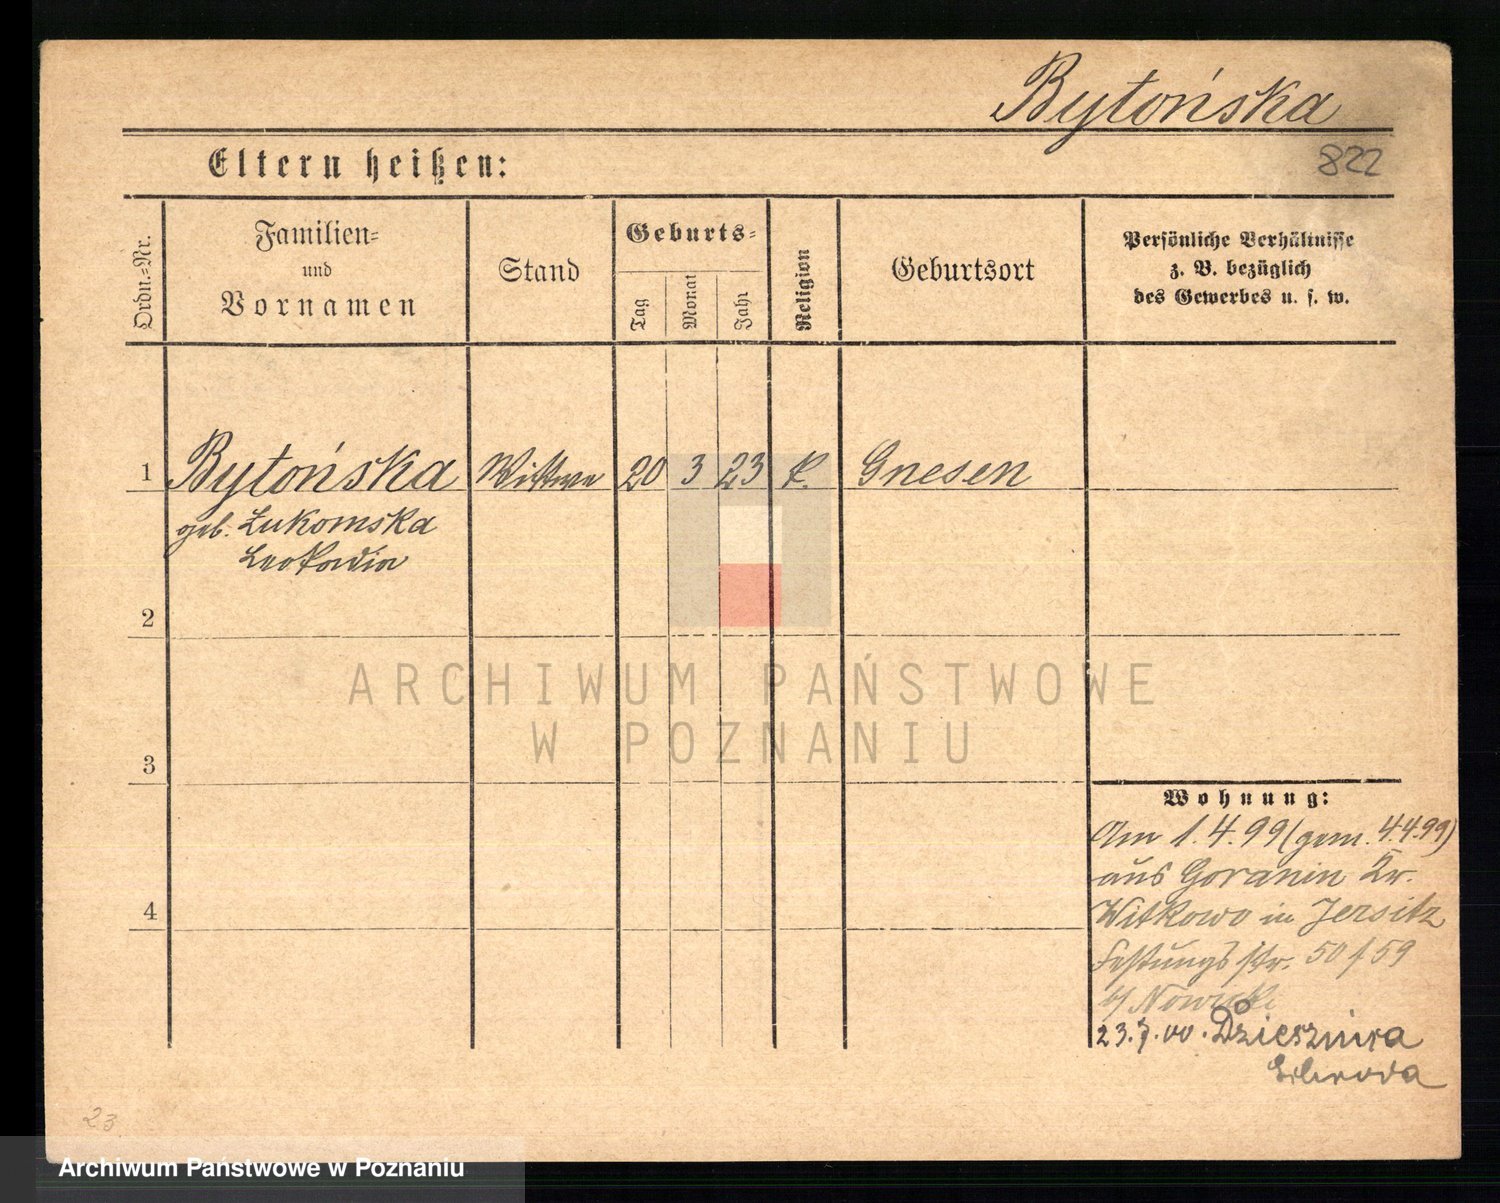 Bytońska
Eltern heißen:
822
Ordn.=Nr.
Familien=
und
Vornamen
Stand
Geburts=
Tag
Monat
Jahr
Religion
Geburtsort
Persönliche Verhältnisse
z. B. bezüglich
des Gewerbes u. s. w.
1 Bytońska Wittwe 20 3 23 k. Gnesen
geb. Łukomska
Leokadia
2
ARCHIWUM PAŃSTWOWE
W POZNANIU
3
Wohnung:
Am 1.4.99 (gem. 4.4.99)
aus Goranin Kr.
4
Witkowo in Jersitz
Festungsstr. 50/59
b/ Nowicki
23.7.00.
Schroda
23
Archiwum Państwowe w Poznaniu